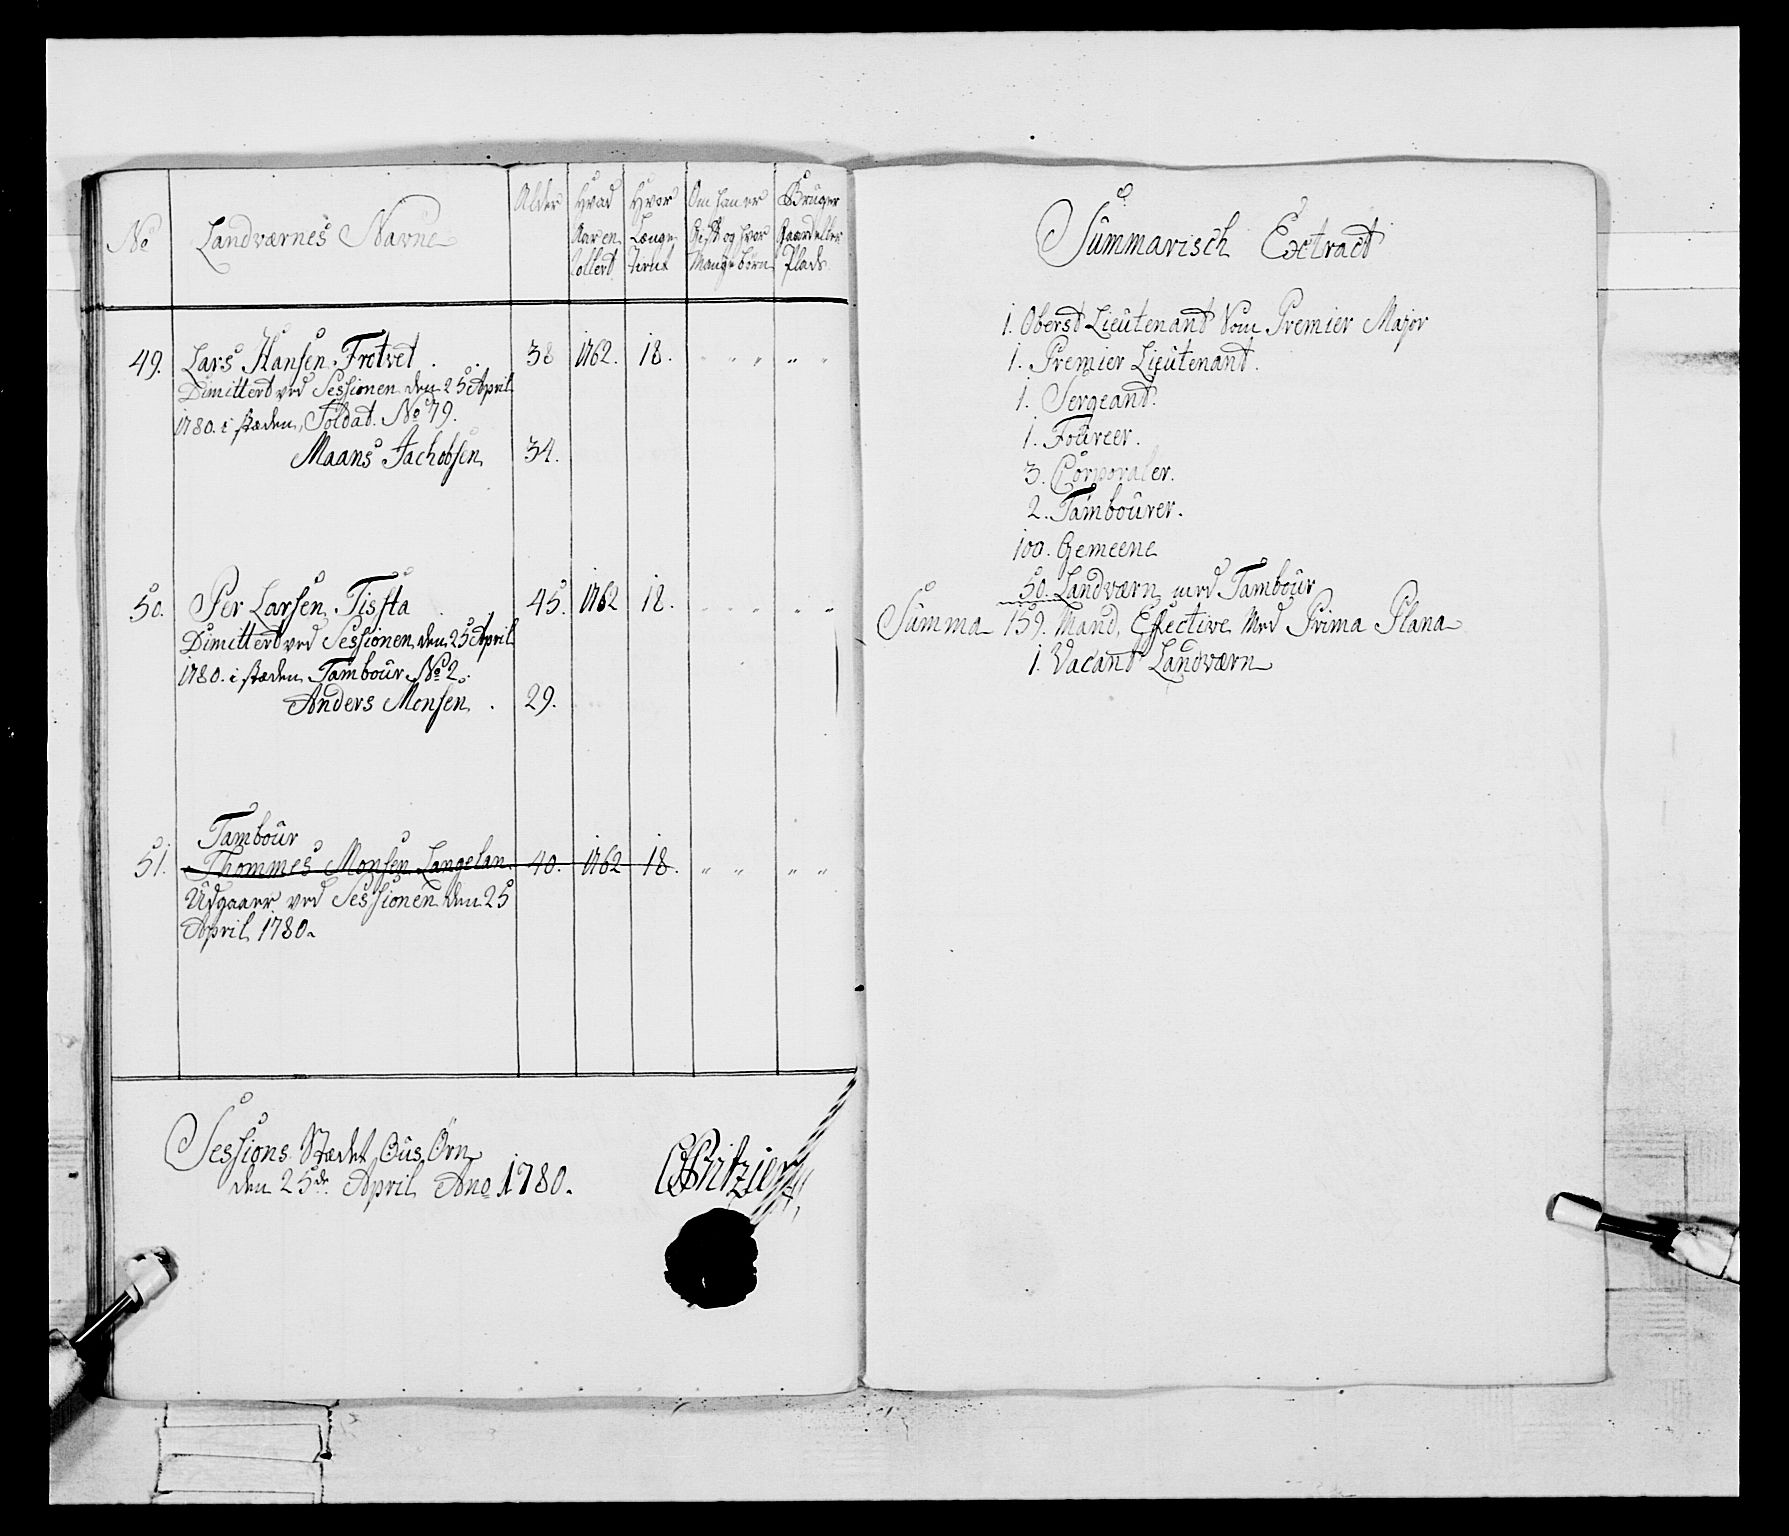 No
Landværnes Navne
Alder
Hvad Aar en rollert
Hvor Længe tient
Om han er Gift og hvor Mange børn
Bruger Gaard eller Plads
49. Lars Hansen Trotvet . 38 1762. 18. " " " " "
Dimittert ved Sessionen den 25 April
1780. i stæden, Soldat No 79.
Maans Jachobsen 34.
50. Per Larsen Tissta 45. 1762 18. " " " " "
Dimittert ved Sessionen den 25 April
1780. i stæden Tambour No 2.
Anders Monsen . 29.
Tambour
51. Thommes Monsen Langelan. 40. 1762 18. " " " "
Udgaaer ved Sessionen den 25
April 1780.
Sessions Stædet Ous Örn
den 25de April Ano 1780.
Summarisch Extract
1. Oberst Lieutenant Som Premier Major
1. Premier Lieutenant.
1. Sergeant.
1. Foureer.
3. Corporaler.
2. Tambourer.
100. Gemeene
50. Landværn med Tambour
Summa 159. Mand, Effective Med Prima Plana
1. Vacant Landværn